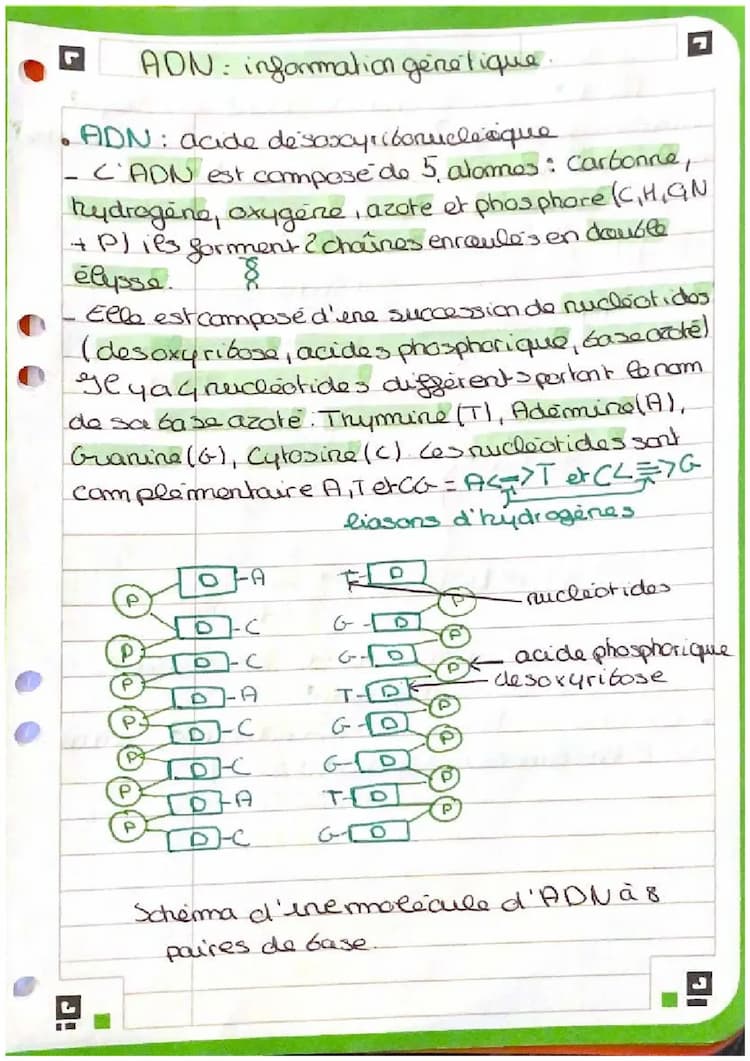 ADN : information génétique.
. ADN : acide désoxyribonucléique
- L'ADN est composé de 5 atomes : carbonne,
hydrogène, oxygène, azote et phosphore (C, H, O, N
+ P) ils forment 2 chaînes enroulés en double
élysse.
- Elle est composé d'une succession de nucléotides
(desoxyribose, acides phosphorique, base azoté)
Il y a 4 nucléotides différents portant le nom
de sa base azoté. Thymine (T), Adénine (A),
Guanine (G), Cytosine (C). Les nucléotides sont
complémentaire A,T et CG = A<=>T et C<≡>G
liasons d'hydrogènes
P D -A T- D P nucléotides
P D -C G- D P
P D -C G- D P acide phosphorique
P D -A T- D P desoxyribose
P D -C G- D P
P D -C G- D P
P D -A T- D P
D -C G- D
Schéma d'une molécule d'ADN à 8
paires de base.